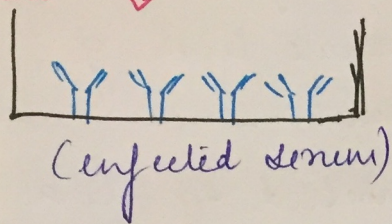 (infected serum)